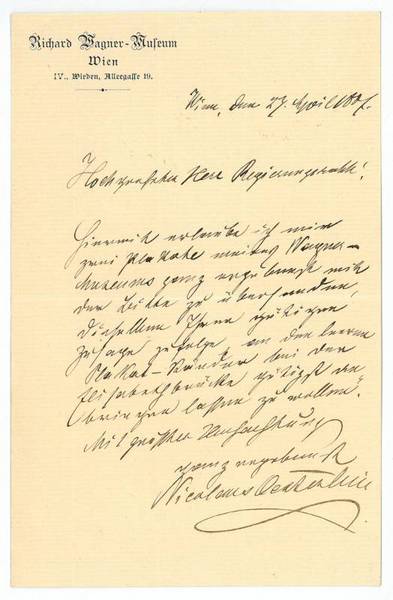 Richard Wagner-Museum
Wien
IV., Wieden, Alleegasse 19.
Wien, den 27. April 1887.
Hochgeehrter Herr Regierungsrath!
Hiermit erlaube ich mir
zwei Plakate meines Wagner-
Museums ganz ergebenst mit
der Bitte zu übersenden,
dieselben Ihrer gütigen
Zusage zufolge an den leeren
Plakat-Ständer bei der
Elisabethbrücke gütigst an
bringen lassen zu wollen.
Mit größter Hochachtung
ganz ergebenst
Nicolaus Oesterlein